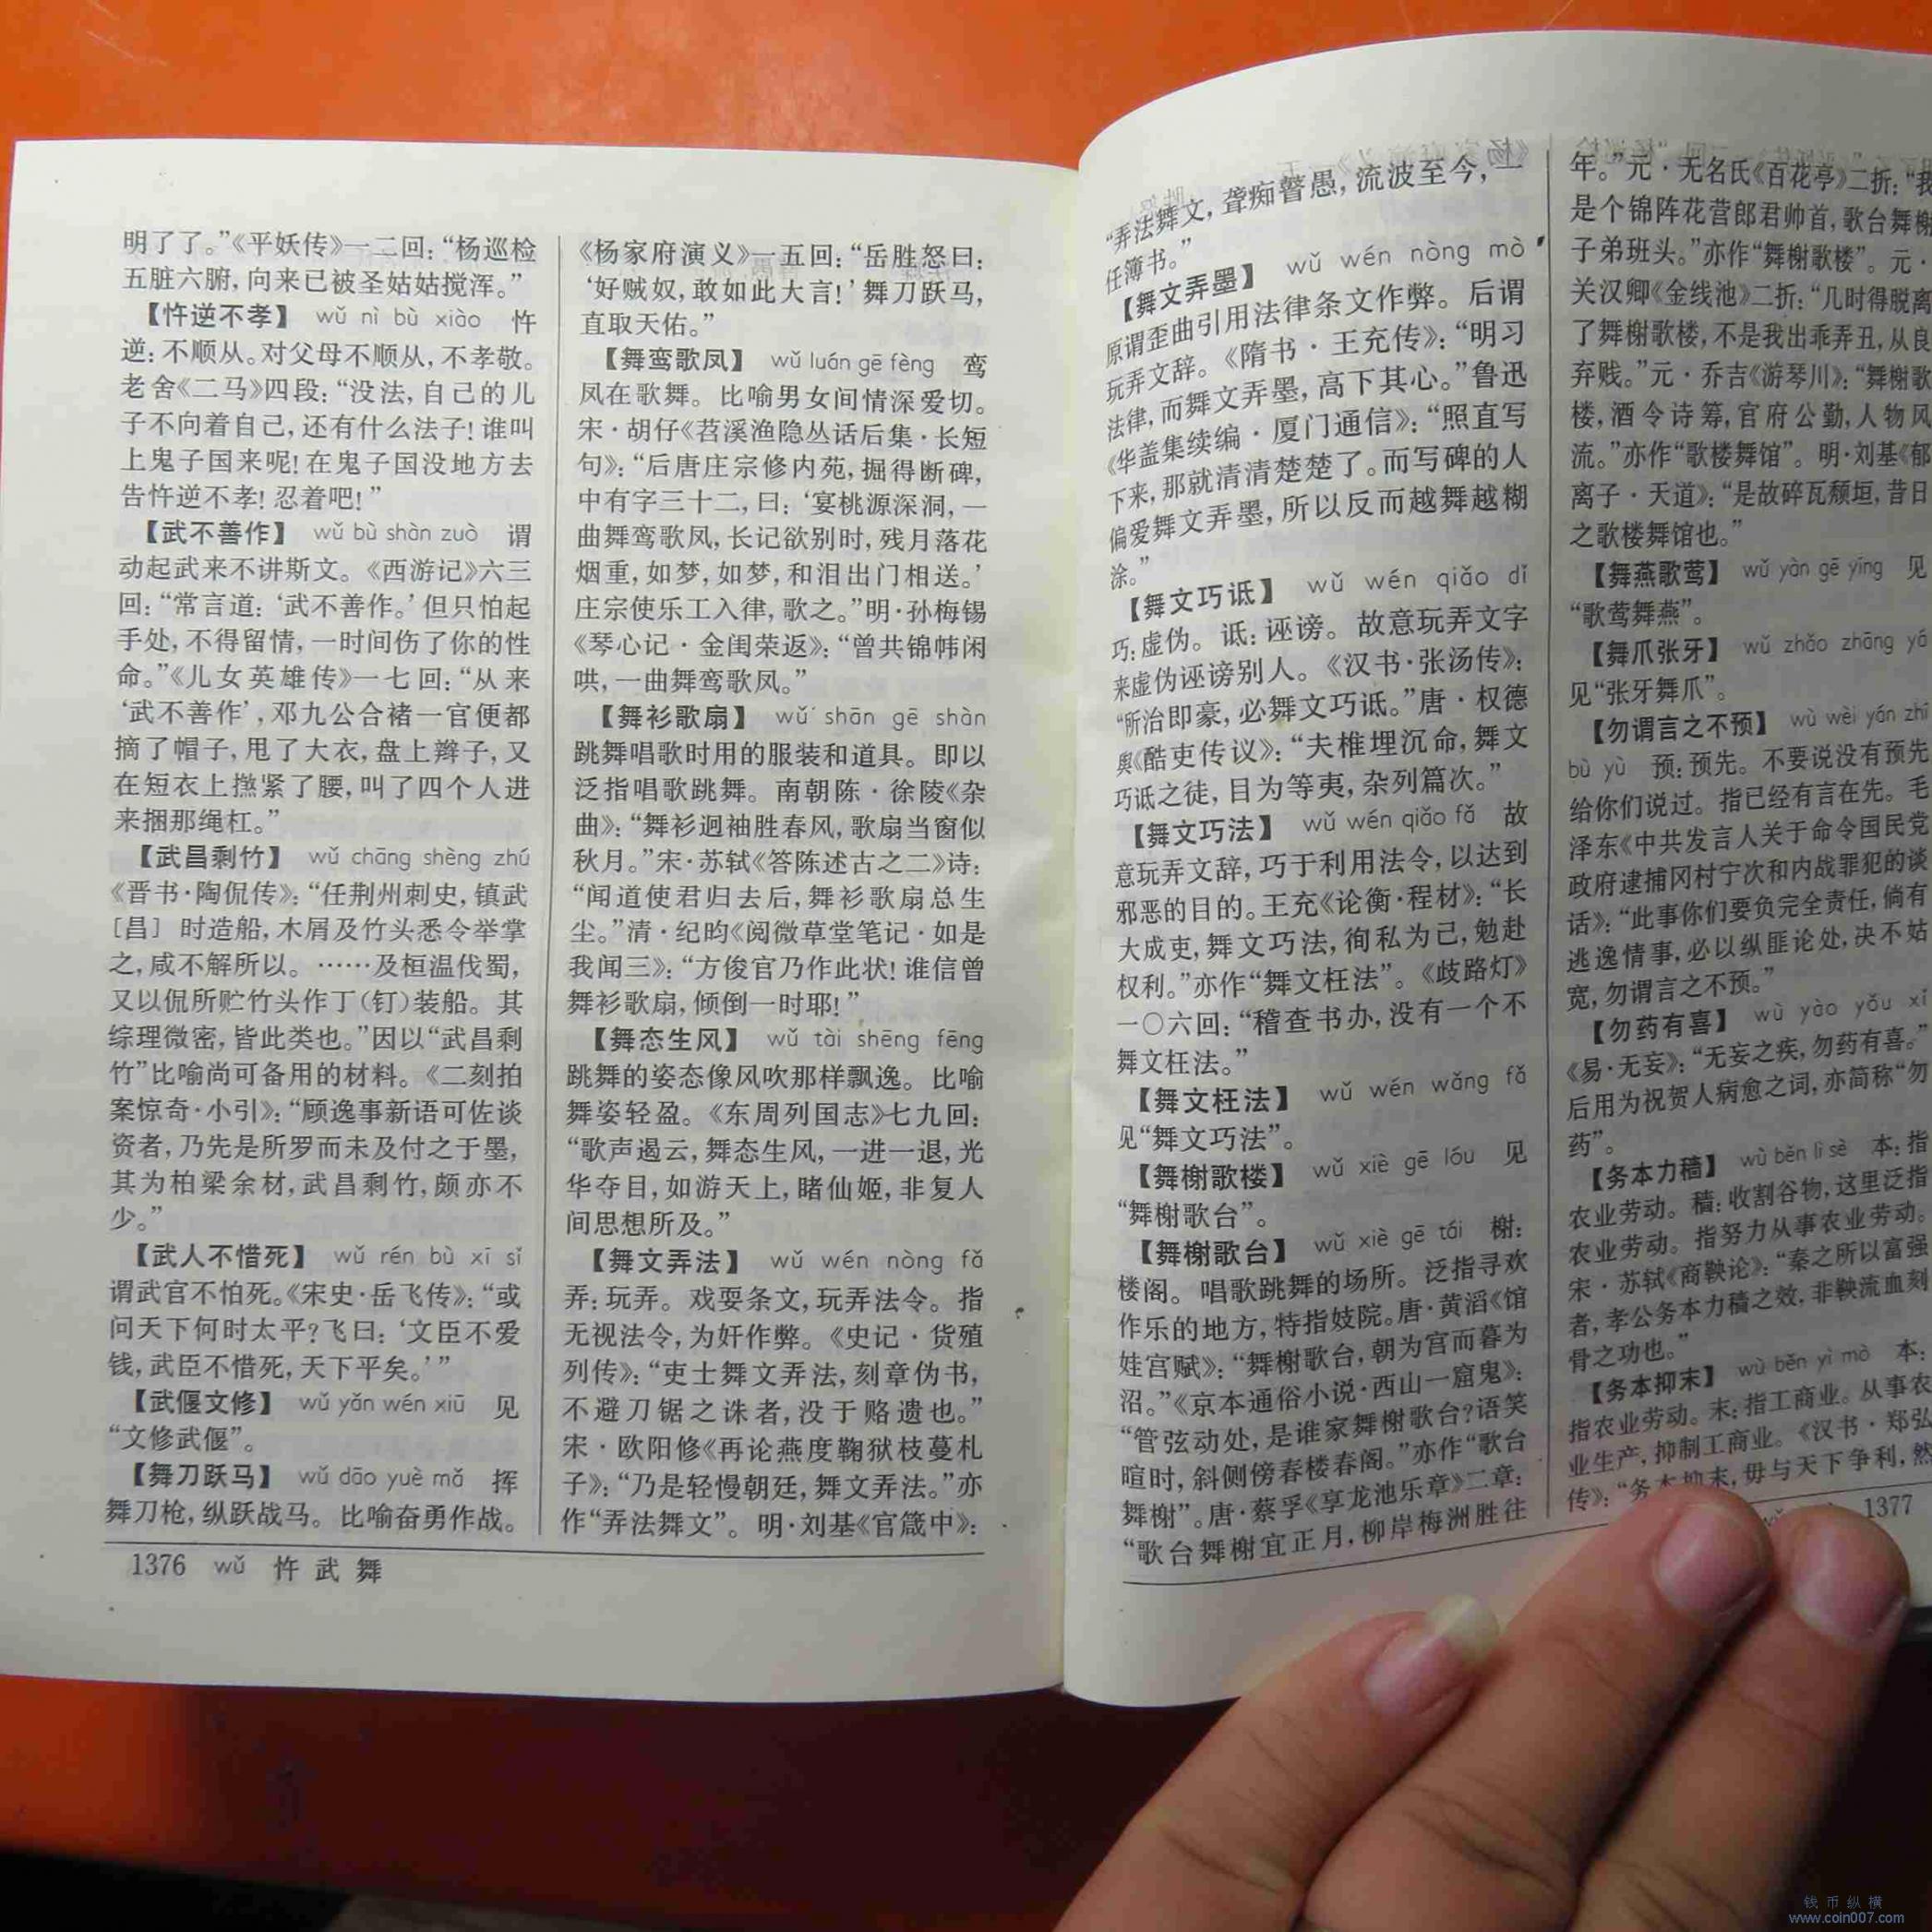 明了了。”《平妖传》一二回：“杨巡检
五脏六腑，向来已被圣姑姑搅浑。”
【忤逆不孝】 wǔ nì bù xiào 忤
逆：不顺从。对父母不顺从，不孝敬。
老舍《二马》四段：“没法，自己的儿
子不向着自己，还有什么法子！谁叫
上鬼子国来呢！在鬼子国没地方去
告忤逆不孝！忍着吧！”
【武不善作】 wǔ bù shàn zuò 谓
动起武来不讲斯文。《西游记》六三
回：“常言道：‘武不善作。’但只怕起
手处，不得留情，一时间伤了你的性
命。”《儿女英雄传》一七回：“从来
‘武不善作’，邓九公合褚一官便都
摘了帽子，甩了大衣，盘上辫子，又
在短衣上撚紧了腰，叫了四个人进
来捆那绳杠。”
【武昌剩竹】 wǔ chāng shèng zhú
《晋书·陶侃传》：“任荆州刺史，镇武
［昌］时造船，木屑及竹头悉令举掌
之，咸不解所以。……及桓温伐蜀，
又以侃所贮竹头作丁（钉）装船。其
综理微密，皆此类也。”因以“武昌剩
竹”比喻尚可备用的材料。《二刻拍
案惊奇·小引》：“顾逸事新语可佐谈
资者，乃先是所罗而未及付之于墨，
其为柏梁余材，武昌剩竹，颇亦不
少。”
【武人不惜死】 wǔ rén bù xī sǐ
谓武官不怕死。《宋史·岳飞传》：“或
问天下何时太平？飞曰：‘文臣不爱
钱，武臣不惜死，天下平矣。’”
【武偃文修】 wǔ yǎn wén xiū 见
“文修武偃”。
【舞刀跃马】 wǔ dāo yuè mǎ 挥
舞刀枪，纵跃战马。比喻奋勇作战。
《杨家府演义》一五回：“岳胜怒曰：
‘好贼奴，敢如此大言！’舞刀跃马，
直取天佑。”
【舞鸾歌凤】 wǔ luán gē fèng 鸾
凤在歌舞。比喻男女间情深爱切。
宋·胡仔《苕溪渔隐丛话后集·长短
句》：“后唐庄宗修内苑，掘得断碑，
中有字三十二，曰：‘宴桃源深洞，一
曲舞鸾歌凤，长记欲别时，残月落花
烟重，如梦，如梦，和泪出门相送。’
庄宗使乐工入律，歌之。”明·孙梅锡
《琴心记·金闺荣返》：“曾共锦帏闲
哄，一曲舞鸾歌凤。”
【舞衫歌扇】 wǔ shān gē shàn
跳舞唱歌时用的服装和道具。即以
泛指唱歌跳舞。南朝陈·徐陵《杂
曲》：“舞衫迥袖胜春风，歌扇当窗似
秋月。”宋·苏轼《答陈述古之二》诗：
“闻道使君归去后，舞衫歌扇总生
尘。”清·纪昀《阅微草堂笔记·如是
我闻三》：“方俊官乃作此状！谁信曾
舞衫歌扇，倾倒一时耶！”
【舞态生风】 wǔ tài shēng fēng
跳舞的姿态像风吹那样飘逸。比喻
舞姿轻盈。《东周列国志》七九回：
“歌声遏云，舞态生风，一进一退，光
华夺目，如游天上，睹仙姬，非复人
间思想所及。”
【舞文弄法】 wǔ wén nòng fǎ
弄：玩弄。戏耍条文，玩弄法令。指
无视法令，为奸作弊。《史记·货殖
列传》：“吏士舞文弄法，刻章伪书，
不避刀锯之诛者，没于赂遗也。”
宋·欧阳修《再论燕度鞠狱枝蔓札
子》：“乃是轻慢朝廷，舞文弄法。”亦
作“弄法舞文”。明·刘基《官箴中》：
1376 wǔ 忤 武 舞
“弄法舞文，聋痴瞽愚，流波至今，一
任簿书。”
【舞文弄墨】 wǔ wén nòng mò
原谓歪曲引用法律条文作弊。后谓
玩弄文辞。《隋书·王充传》：“明习
法律，而舞文弄墨，高下其心。”鲁迅
《华盖集续编·厦门通信》：“照直写
下来，那就清清楚楚了。而写碑的人
偏爱舞文弄墨，所以反而越舞越糊
涂。”
【舞文巧诋】 wǔ wén qiǎo dǐ
巧：虚伪。诋：诬谤。故意玩弄文字
来虚伪诬谤别人。《汉书·张汤传》：
“所治即豪，必舞文巧诋。”唐·权德
舆《酷吏传议》：“夫椎埋沉命，舞文
巧诋之徒，目为等夷，杂列篇次。”
【舞文巧法】 wǔ wén qiǎo fǎ 故
意玩弄文辞，巧于利用法令，以达到
邪恶的目的。王充《论衡·程材》：“长
大成吏，舞文巧法，徇私为己，勉赴
权利。”亦作“舞文枉法”。《歧路灯》
一〇六回：“稽查书办，没有一个不
舞文枉法。”
【舞文枉法】 wǔ wén wǎng fǎ
见“舞文巧法”。
【舞榭歌楼】 wǔ xiè gē lóu 见
“舞榭歌台”。
【舞榭歌台】 wǔ xiè gē tái 榭：
楼阁。唱歌跳舞的场所。泛指寻欢
作乐的地方，特指妓院。唐·黄滔《馆
娃宫赋》：“舞榭歌台，朝为宫而暮为
沼。”《京本通俗小说·西山一窟鬼》：
“管弦动处，是谁家舞榭歌台？语笑
暄时，斜侧傍春楼春阁。”亦作“歌台
舞榭”。唐·蔡孚《享龙池乐章》二章：
“歌台舞榭宜正月，柳岸梅洲胜往
年。”元·无名氏《百花亭》二折：“我
是个锦阵花营郎君帅首，歌台舞榭
子弟班头。”亦作“舞榭歌楼”。元·
关汉卿《金线池》二折：“几时得脱离
了舞榭歌楼，不是我出乖弄丑，从良
弃贱。”元·乔吉《游琴川》：“舞榭歌
楼，酒令诗筹，官府公勤，人物风
流。”亦作“歌楼舞馆”。明·刘基《郁
离子·天道》：“是故碎瓦颓垣，昔日
之歌楼舞馆也。”
【舞燕歌莺】 wǔ yàn gē yīng 见
“歌莺舞燕”。
【舞爪张牙】 wǔ zhǎo zhāng yá
见“张牙舞爪”。
【勿谓言之不预】 wù wèi yán zhī
bù yù 预：预先。不要说没有预先
给你们说过。指已经有言在先。毛
泽东《中共发言人关于命令国民党
政府逮捕冈村宁次和内战罪犯的谈
话》：“此事你们要负完全责任，倘有
逃逸情事，必以纵匪论处，决不姑
宽，勿谓言之不预。”
【勿药有喜】 wù yào yǒu xǐ
《易·无妄》：“无妄之疾，勿药有喜。”
后用为祝贺人病愈之词，亦简称“勿
药”。
【务本力穑】 wù běn lì sè 本：指
农业劳动。穑：收割谷物，这里泛指
农业劳动。指努力从事农业劳动。
宋·苏轼《商鞅论》：“秦之所以富强
者，孝公务本力穑之效，非鞅流血刻
骨之功也。”
【务本抑末】 wù běn yì mò 本：
指农业劳动。末：指工商业。从事农
业生产，抑制工商业。《汉书·郑弘
传》：“务本抑末，毋与天下争利，然
1377
钱币纵横
www.coin007.com